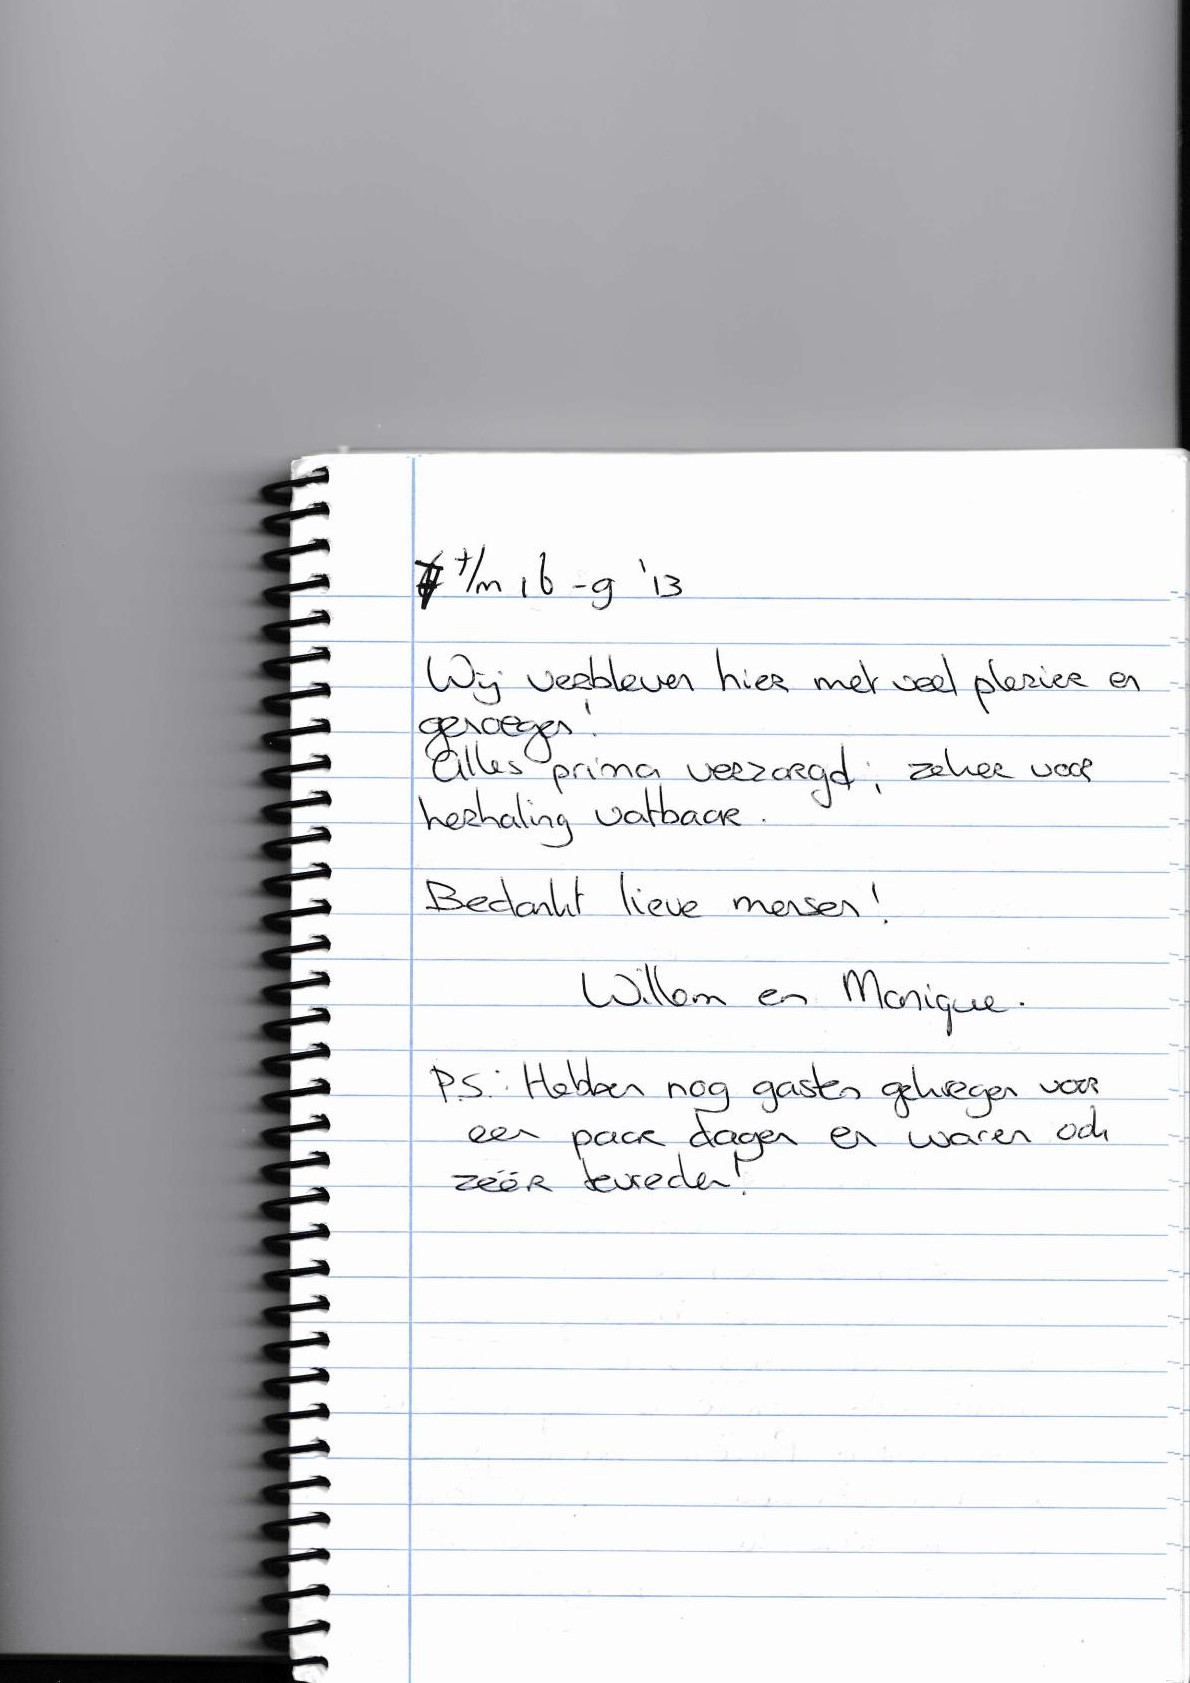 7 t/m 16 -9 '13
Wij verbleven hier met veel plezier en
genoegen!
Alles prima verzorgd; zeker voor
herhaling vatbaar.
Bedankt lieve mensen!
Willem en Monique.
P.S.: Hebben nog gasten gekregen voor
een paar dagen en waren ook
zéér tevreden!